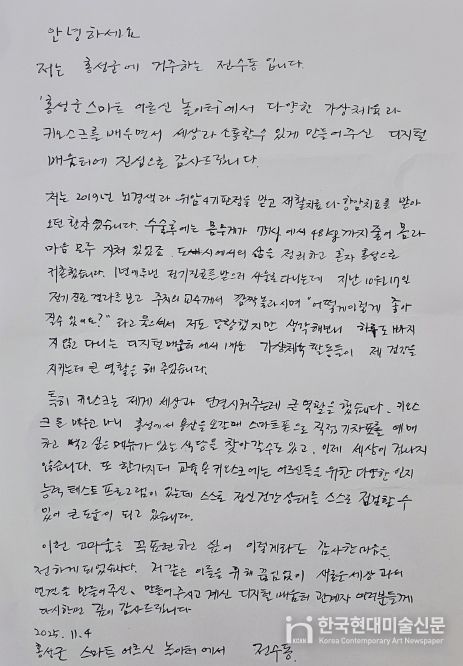 안녕하세요
저는 홍성군에 거주하는 전수동입니다.
'홍성군 스마트 어르신 놀이터'에서 다양한 가상체육과
키오스크를 배우면서 세상과 소통할수 있게 만들어주신 디지털
배움터에 진심으로 감사드립니다.
저는 2019년 뇌경색과 위암4기판정을 받고 재활치료와 항암치료를 받아
오던 환자였습니다. 수술후에는 몸무게가 78kg에서 48kg까지 줄어 몸과
마음 모두 지쳐 있었죠. 도시에서의 삶을 정리하고 혼자 홍성으로
귀촌했습니다. 1년에 두번 정기진료를 받으러 서울로 다니는데 지난 10월17일
정기진료 결과를 보고 주치의 교수께서 깜짝 놀라시며 "어떻게 이렇게 좋아
질수 있어요?" 라고 물으셔서 저도 당황했지만 생각해보니 하루도 빠지
지 않고 다니는 디지털 배움터에서 배운 가상체육 활동들이 제 건강을
지키는데 큰 역할을 해 주었습니다.
특히 키오스크는 제게 세상과 연결시켜주는데 큰 역할을 했습니다. 키오스
크를 배우고 나니 홍성에서 용산을 오갈때 스마트폰으로 직접 기차표를 예매
하고 먹고 싶은 메뉴가 있는 식당을 찾아갈수도 있고, 이제 세상이 겁나지
않습니다. 또 한가지더 교육용 키오스크에는 어르신들을 위한 다양한 인지
능력 테스트 프로그램이 있는데 스스로 정신건강 상태를 스스로 점검할 수
있어 큰 도움이 되고 있습니다.
이런 고마움을 꼭 표현하고 싶어 이렇게라도 감사한 마음을
전하게 되었습니다. 저 같은 이들을 위해 끊임없이 새로운 세상과의
연결을 만들어주신, 만들어주시고 계신 디지털 배움터 관계자 여러분들께
다시한번 깊이 감사드립니다
2025. 11. 4
홍성군 스마트 어르신 놀이터에서 전수동.
한국현대미술신문
KCAN
Korea Contemporary Art Newspaper